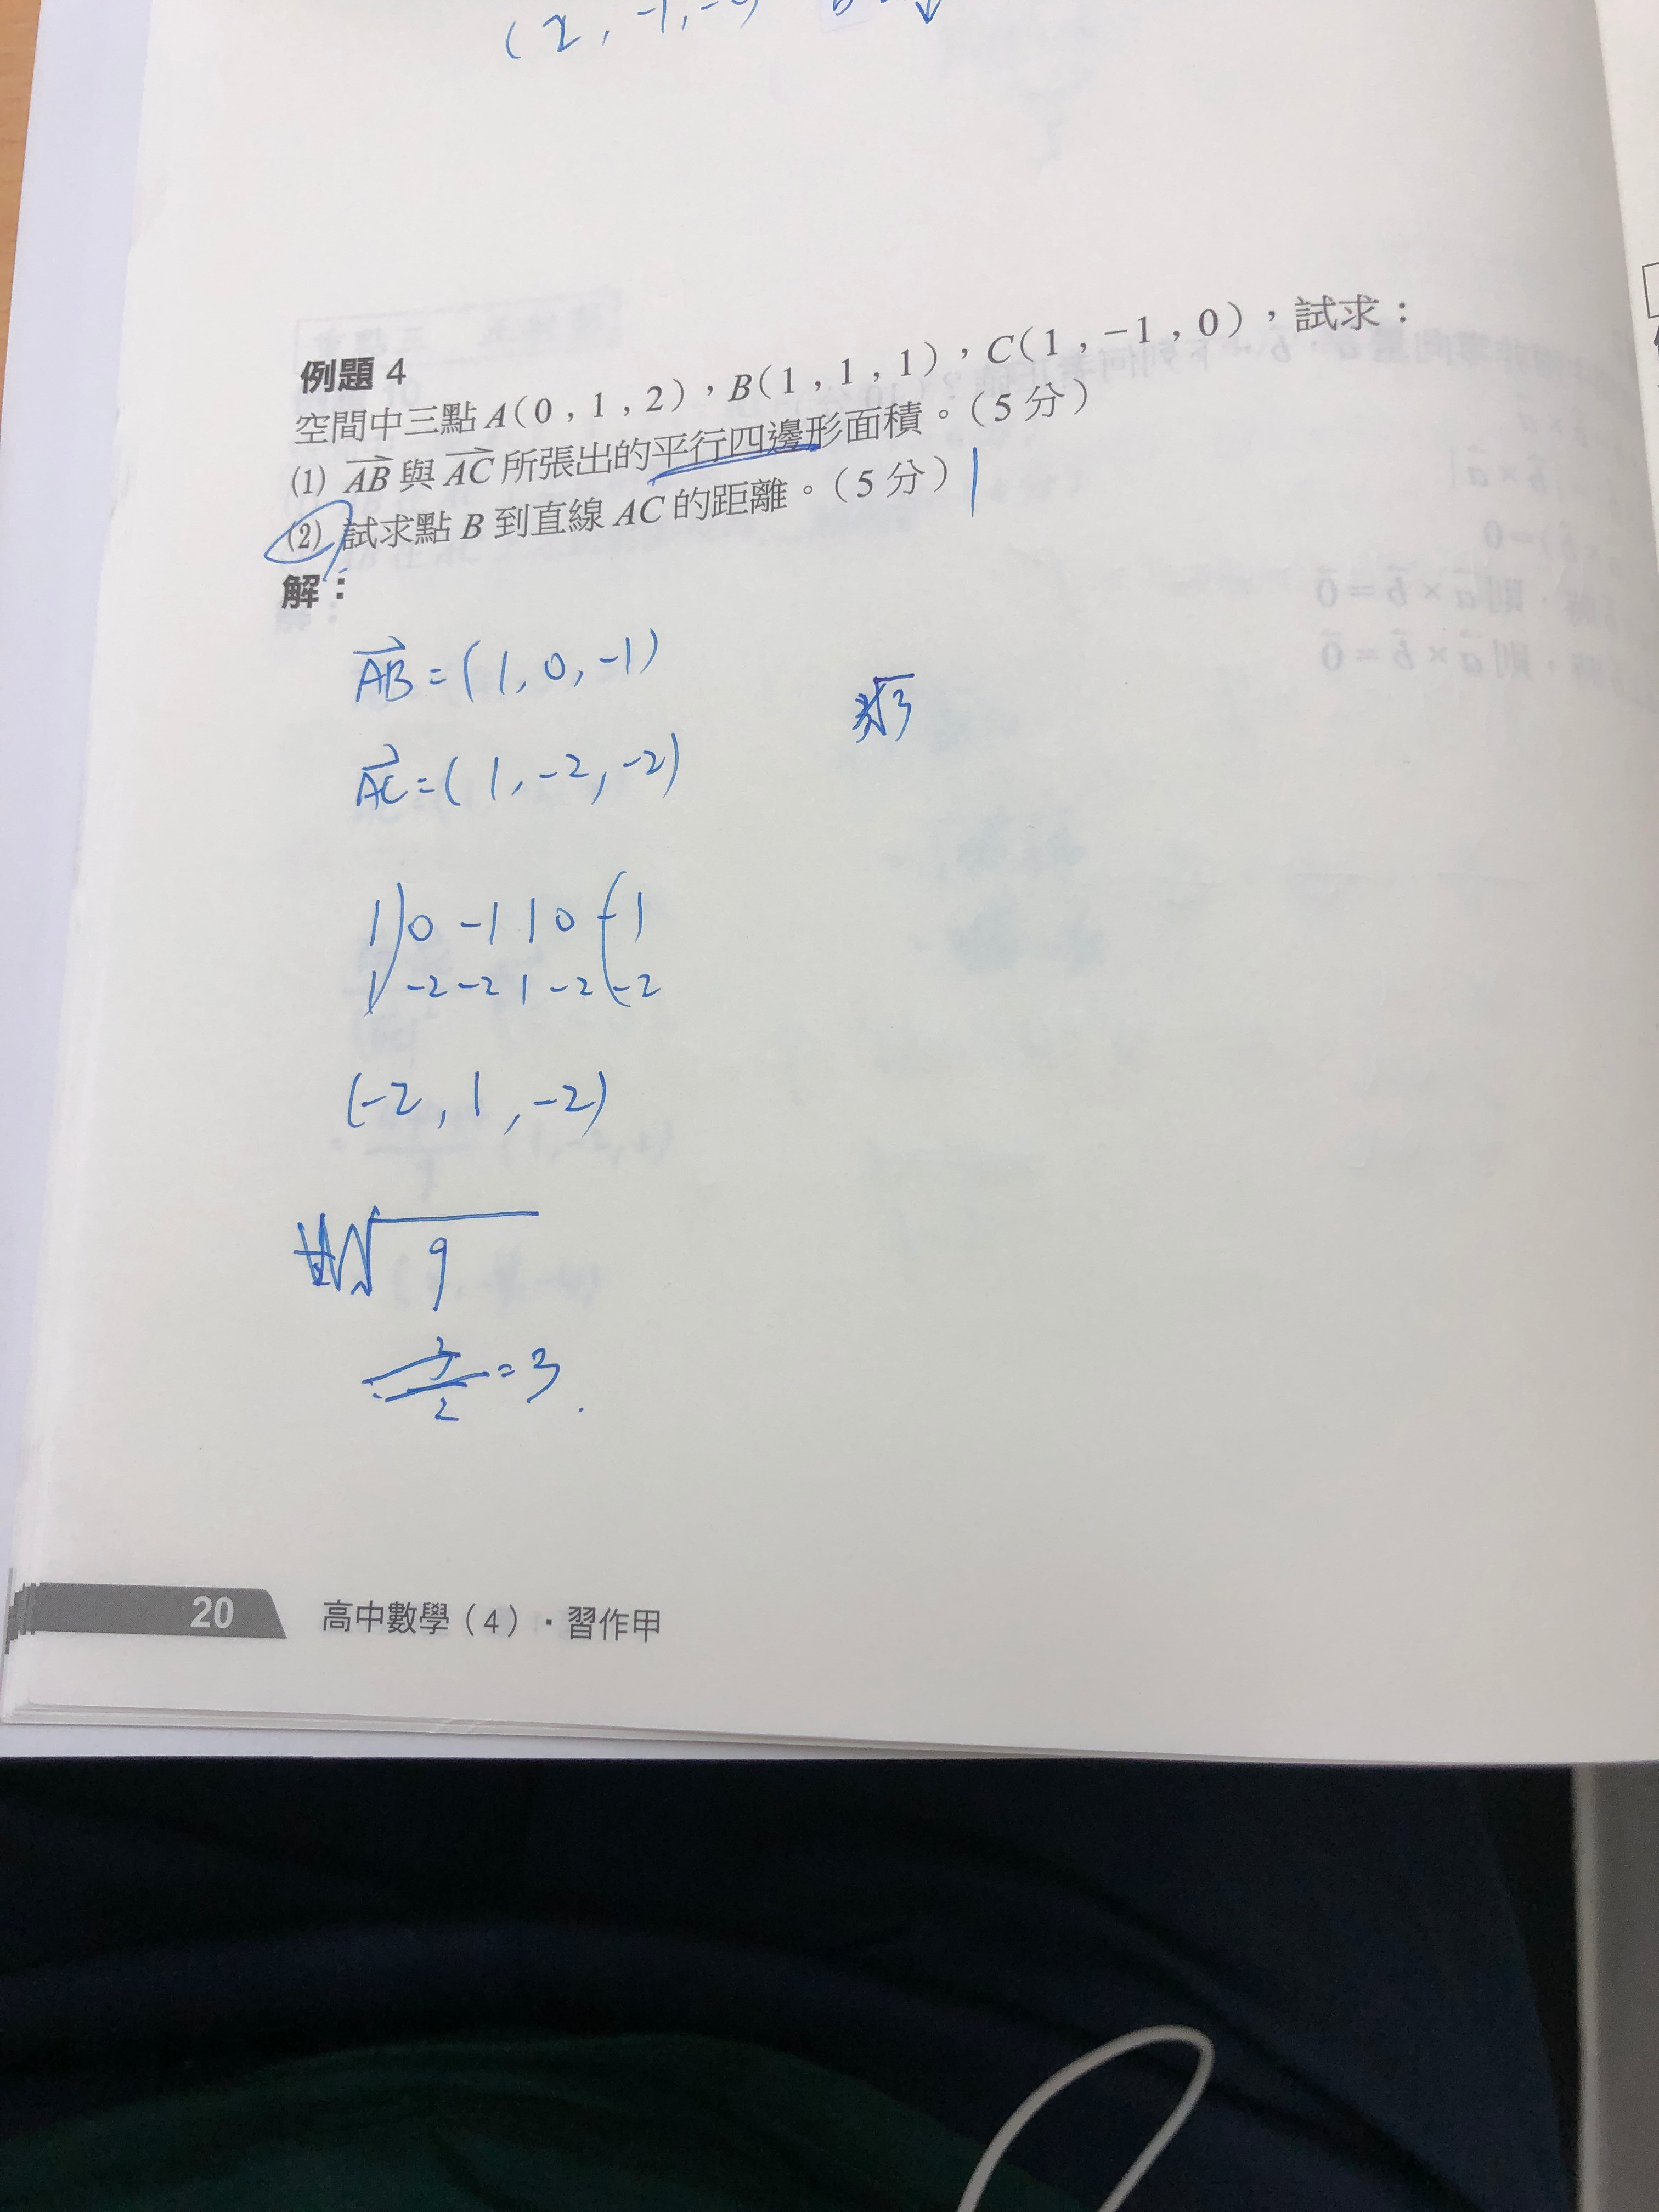 (2, -1,
例題 4
空間中三點 A(0,1,2),B(1,1,1),C(1,-1,0),試求:
(1) AB 與 AC 所張出的平行四邊形面積。(5分)
(2) 試求點 B 到直線 AC 的距離。(5分)
解:
AB = (1, 0, -1)
√3
AC = (1, -2, -2)
1 0 -1 1 0 -1
1 -2 -2 1 -2 -2
(-2, 1, -2)
√9
= 3
20 高中數學(4)・習作甲